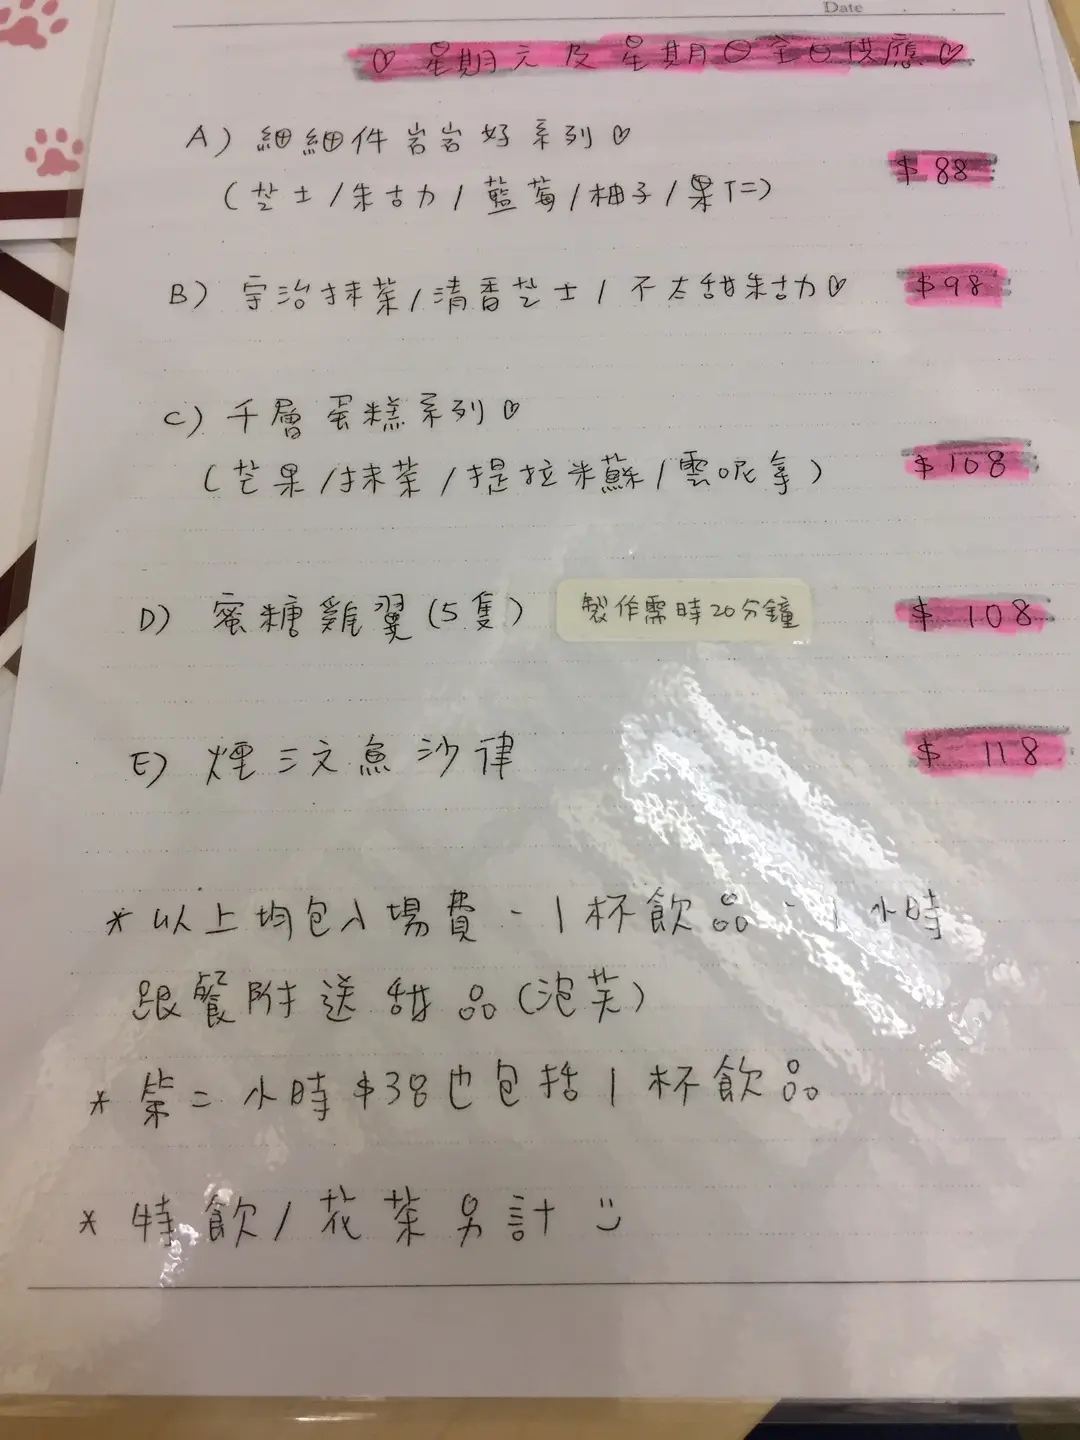 Date
♡ 星期六及星期日全日供應 ♡
A) 細細件岩岩好系列♡
(芝士/朱古力/藍莓/柚子/果仁) $88
B) 宇治抹茶/清香芝士/不太甜朱古力♡ $98
C) 千層蛋糕系列♡
(芒果/抹茶/提拉米蘇/雲呢拿) $108
D) 蜜糖雞翼(5隻) 製作需時20分鐘 $108
E) 煙三文魚沙律 $118
* 以上均包入場費-1杯飲品-1小時
跟餐附送甜品(泡芙)
* 第二小時$38也包括1杯飲品
* 特飲/花茶另計 :)